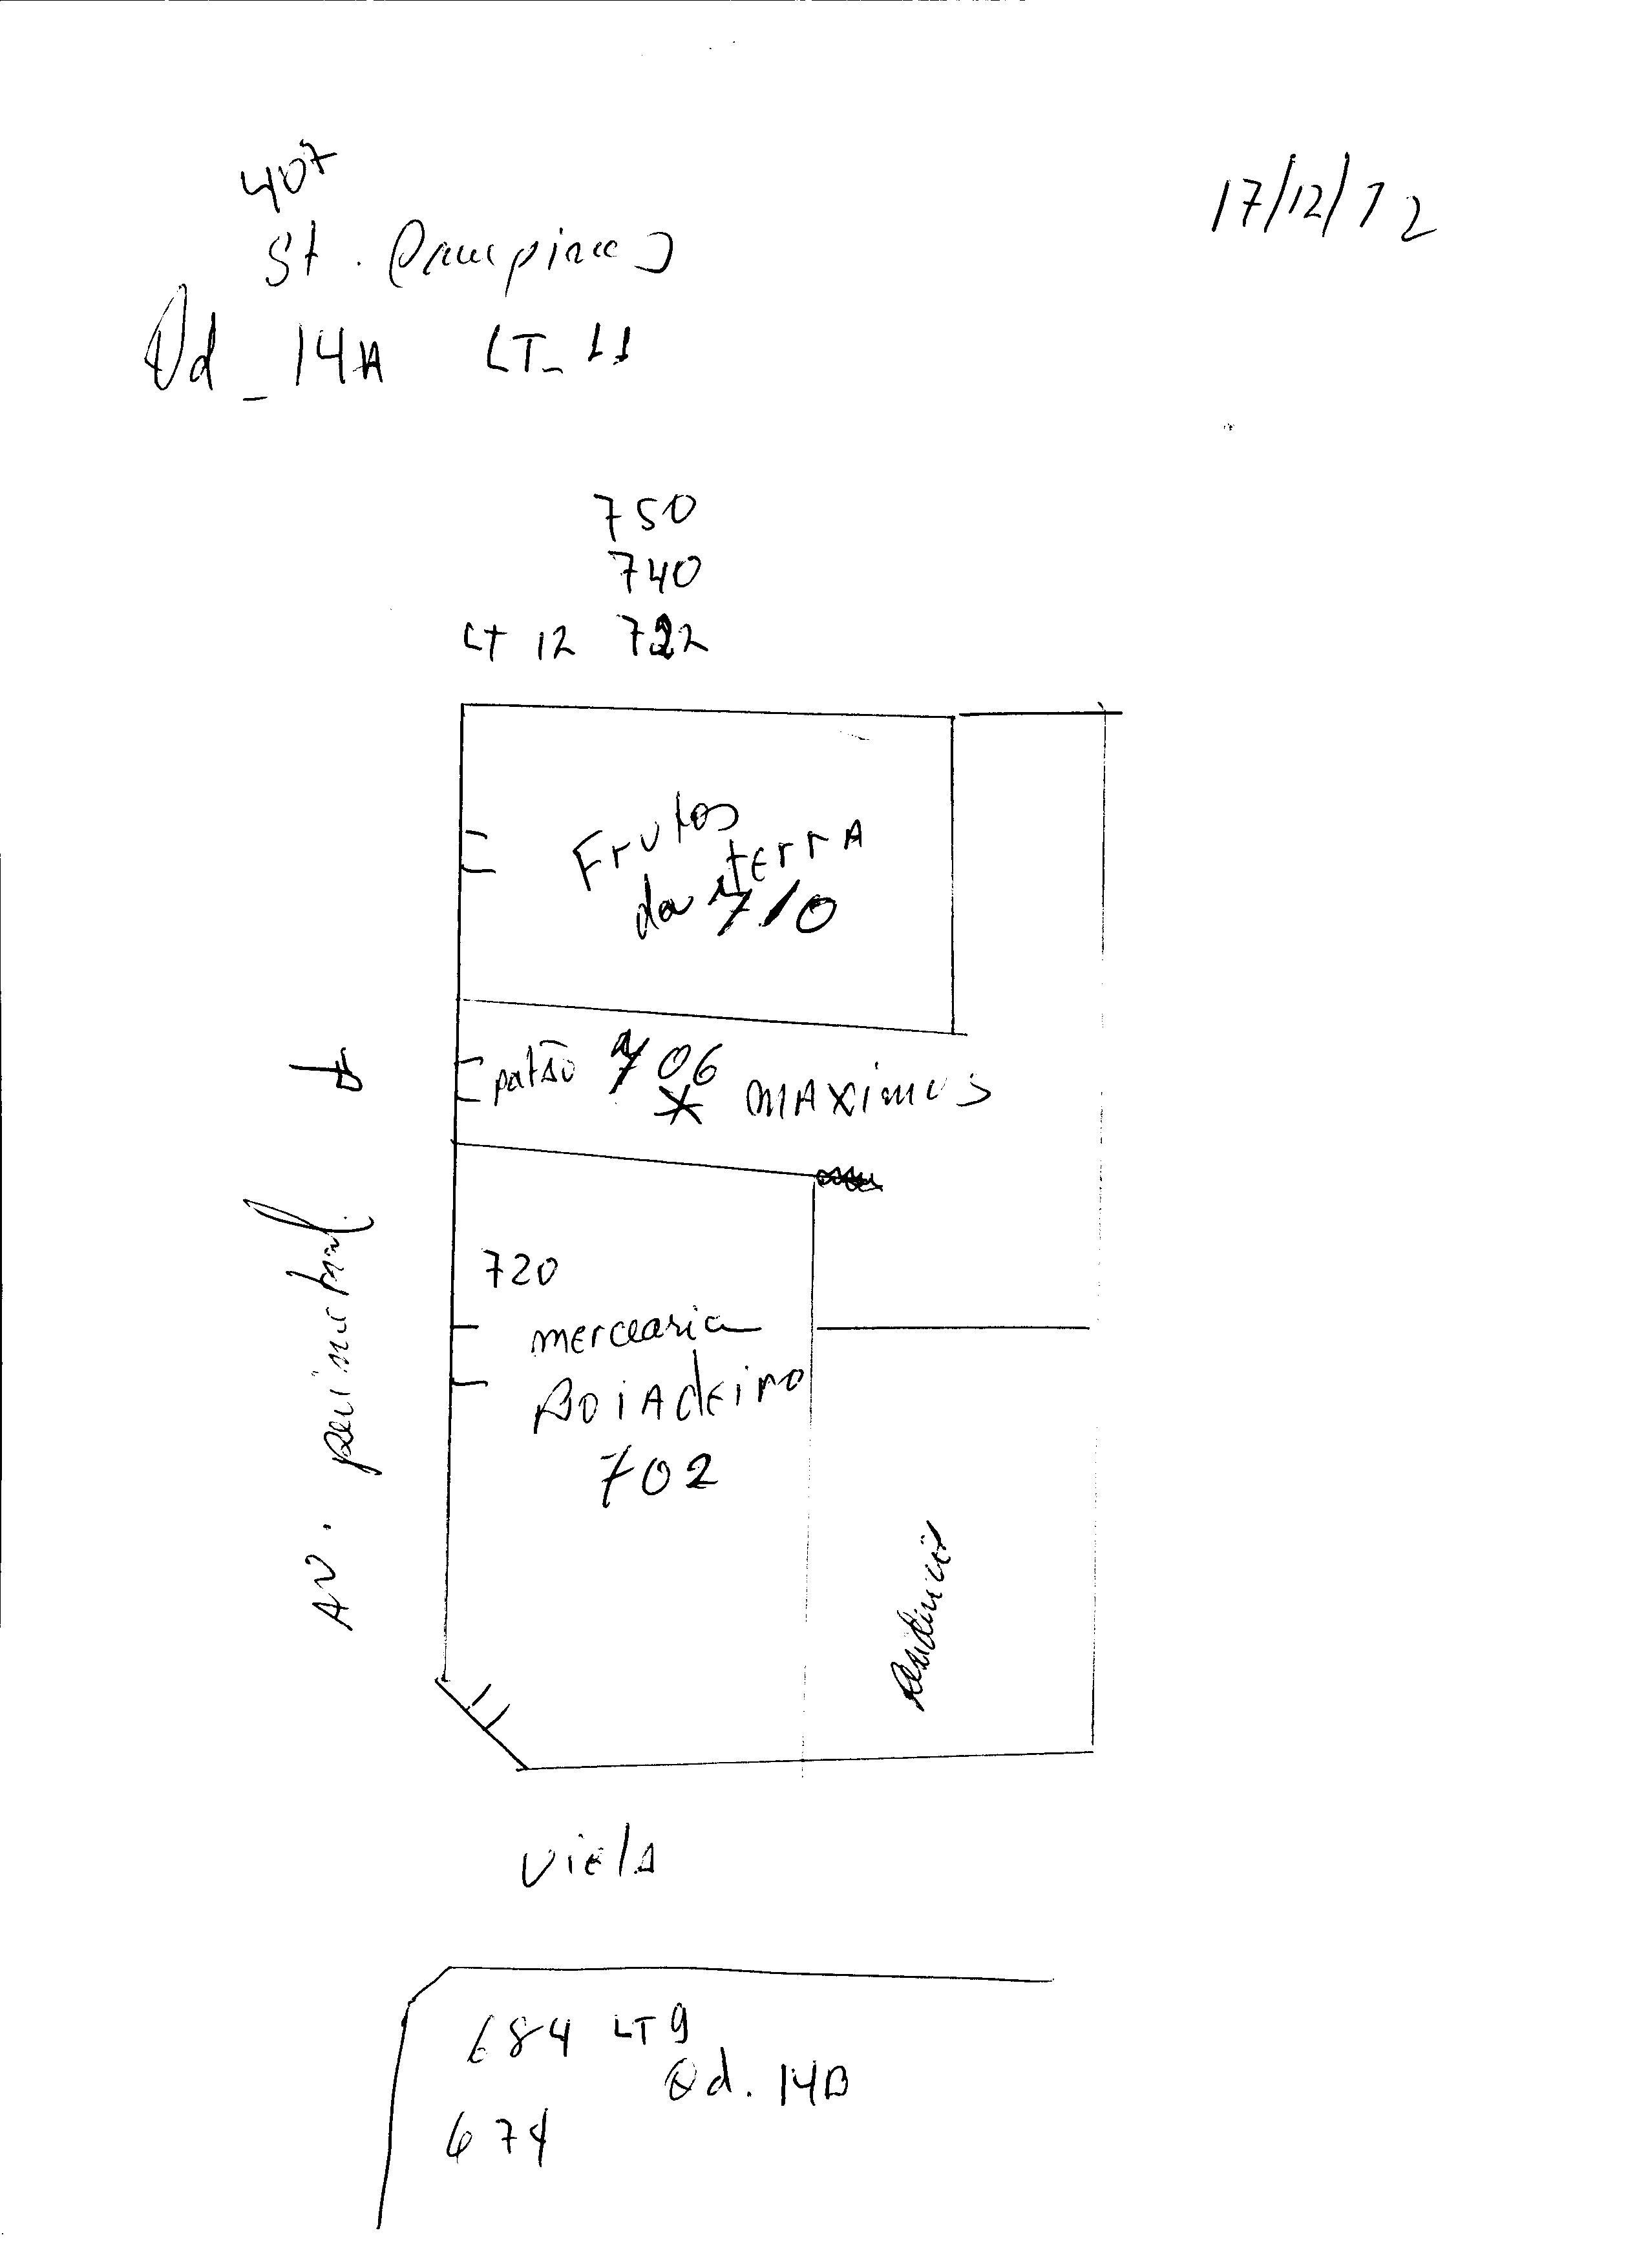 407
17/12/12
St. Campinas
Qd_14A LT_11
750
740
LT 12 722
Frutos
da terra
710
patão 706
* Maximus
720
mercearia
Boiadeiro
702
Av. perimetral
Residencia
Viela
684 LT 9
Qd. 14B
674